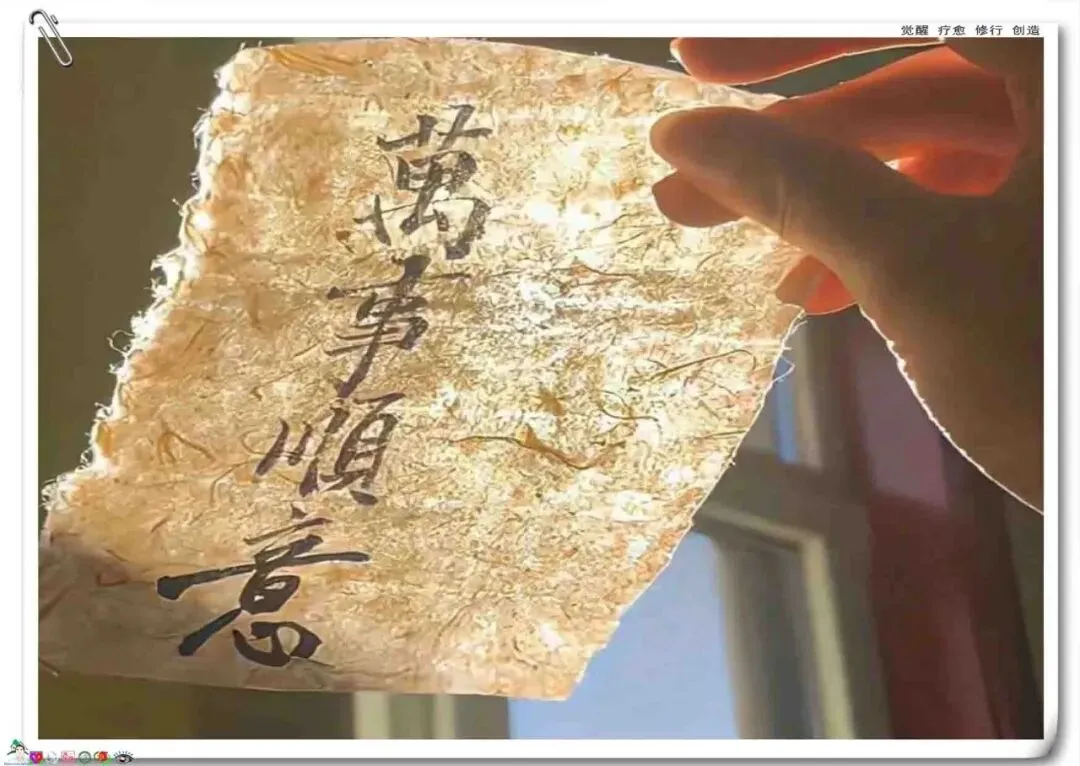 觉醒 疗愈 修行 创造
萬事順意